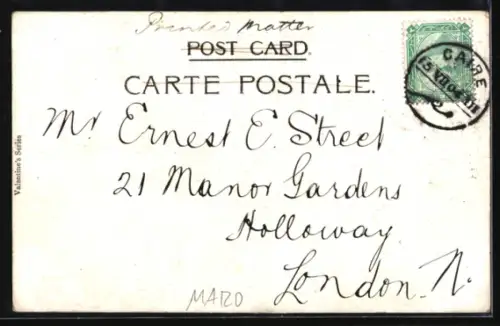 Printed Matter
POST CARD.
CARTE POSTALE.
CAIRE
Mr Ernest E. Street
21 Manor Gardens
Holloway
London. N.
Valentine's Series
MARO